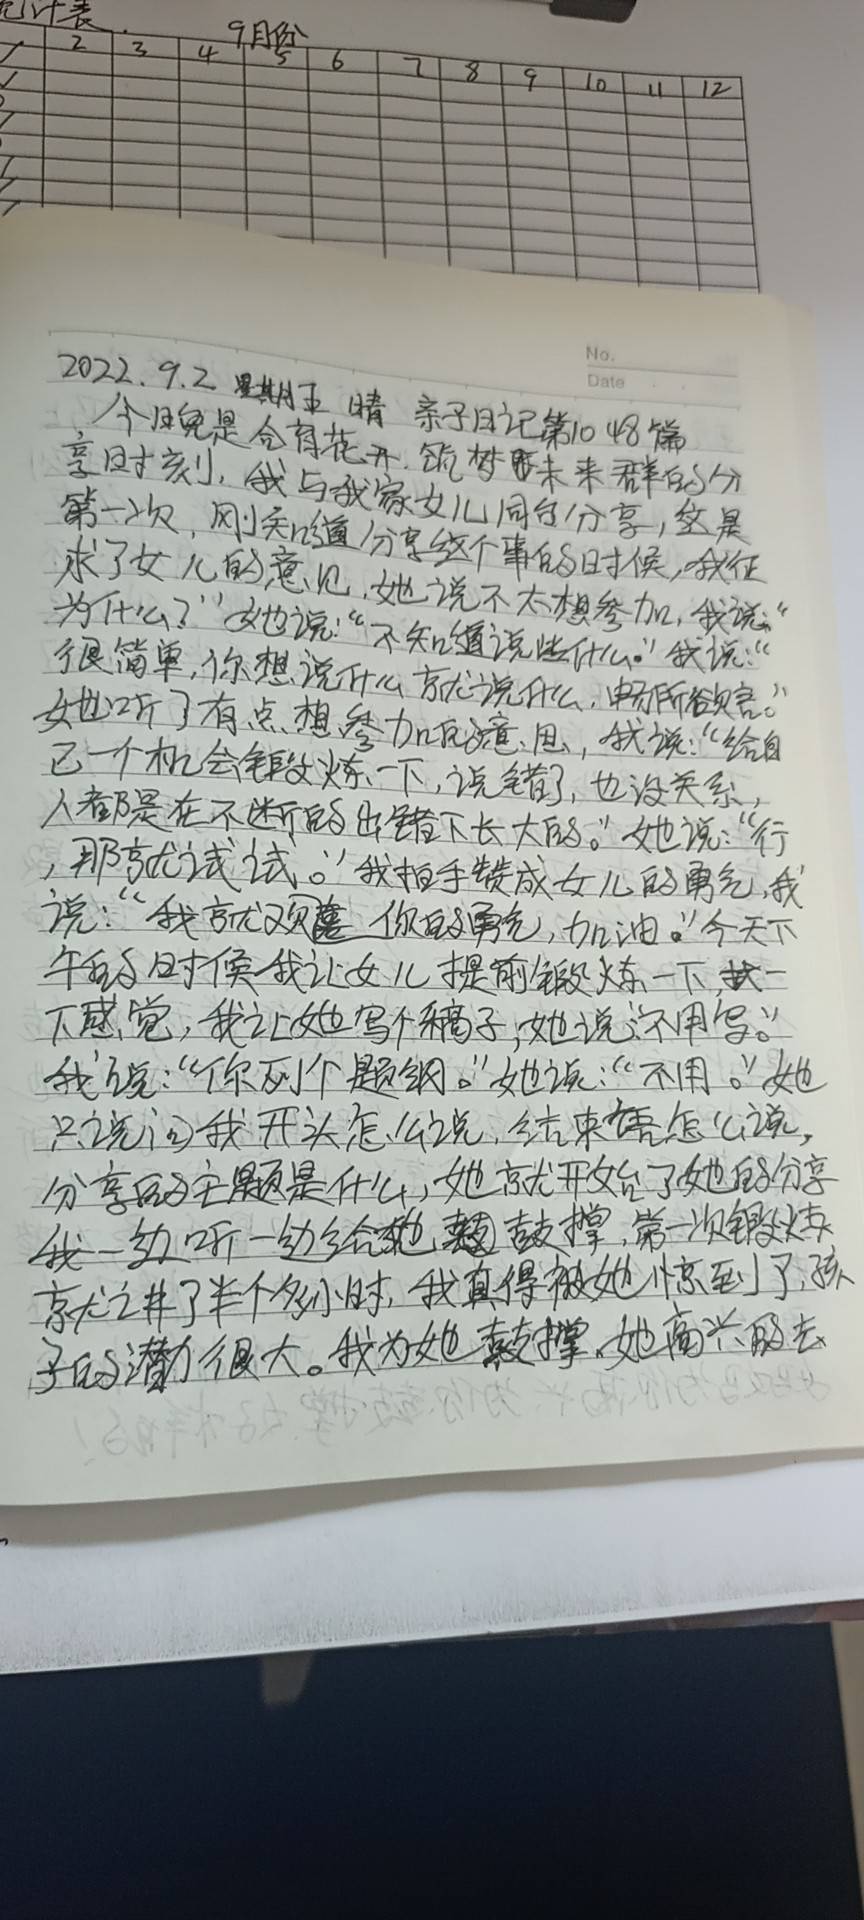 统计表
9月份
2 3 4 5 6 7 8 9 10 11 12
No.
Date
2022.9.2 星期五 晴 亲子日记第1048篇
今日晚是合育花开.筑梦未来群的分
享时刻,我与我家女儿同台分享,这是
第一次,刚知道分享这个事的时候,我征
求了女儿的意见,她说不太想参加,我说:“
为什么?”她说:“不知道说些什么。”我说:“
很简单,你想说什么就说什么,畅所欲言。”
她听了有点想参加的意思,我说:“给自
己一个机会锻炼一下,说错了,也没关系,
人都是在不断的出错下长大的。”她说:“行
,那就试试。”我拍手赞成女儿的勇气,我
说:“我就欢喜你的勇气,加油。”今天下
午的时候我让女儿提前锻炼一下,找一
下感觉,我让她写个稿子,她说:“不用写。”
我说:“你列个题纲。”她说:“不用。”她
只说问我开头怎么说,结束语怎么说,
分享的主题是什么,她就开始了她的分享
我一边听一边给她鼓撑,第一次锻炼
就讲了半个多小时,我真得被她惊到了,孩
子的潜力很大。我为她鼓撑,她高兴的去